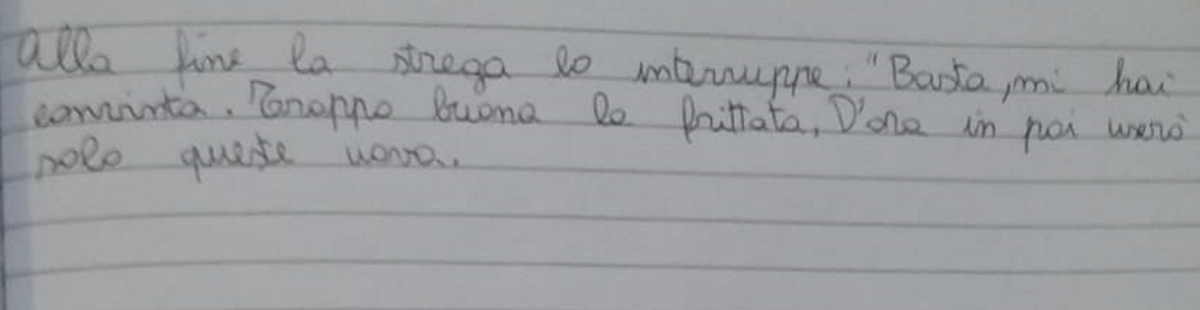 Alla fine la strega lo interruppe: "Basta, mi hai
convinta. Troppo buona la frittata, D'ora in poi userò
solo queste uova.